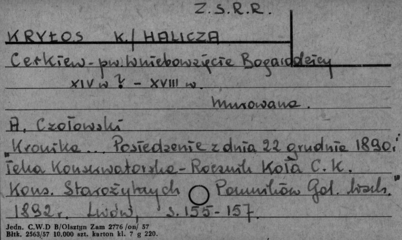 Z.S.R.R.
KRYŁOS K./HALICZA
Cerkiew - pw. Wniebowzięcie Bogarodzicy
XIV w ? - XVIII w.
Murowana.
A. Czołowski
"Kronika ... Posiedzenie z dnia 22 grudnia 1890."
Teka Konserwatorska - Rocznik Koła C.K.
Kons. Starożytnych Pomników Gal. Wsch.
1892r. Lwów, s. 155-157.
Jedn. C.W.D B/Olsztyn Zam 2776/on/57
Bltk. 2563/57 10.000 szt. karton kl. ? g 220.